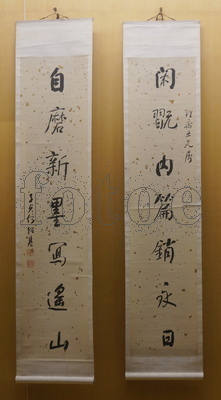 閑翫內篇銷永日
自磨新墨寫遙山
fotoe